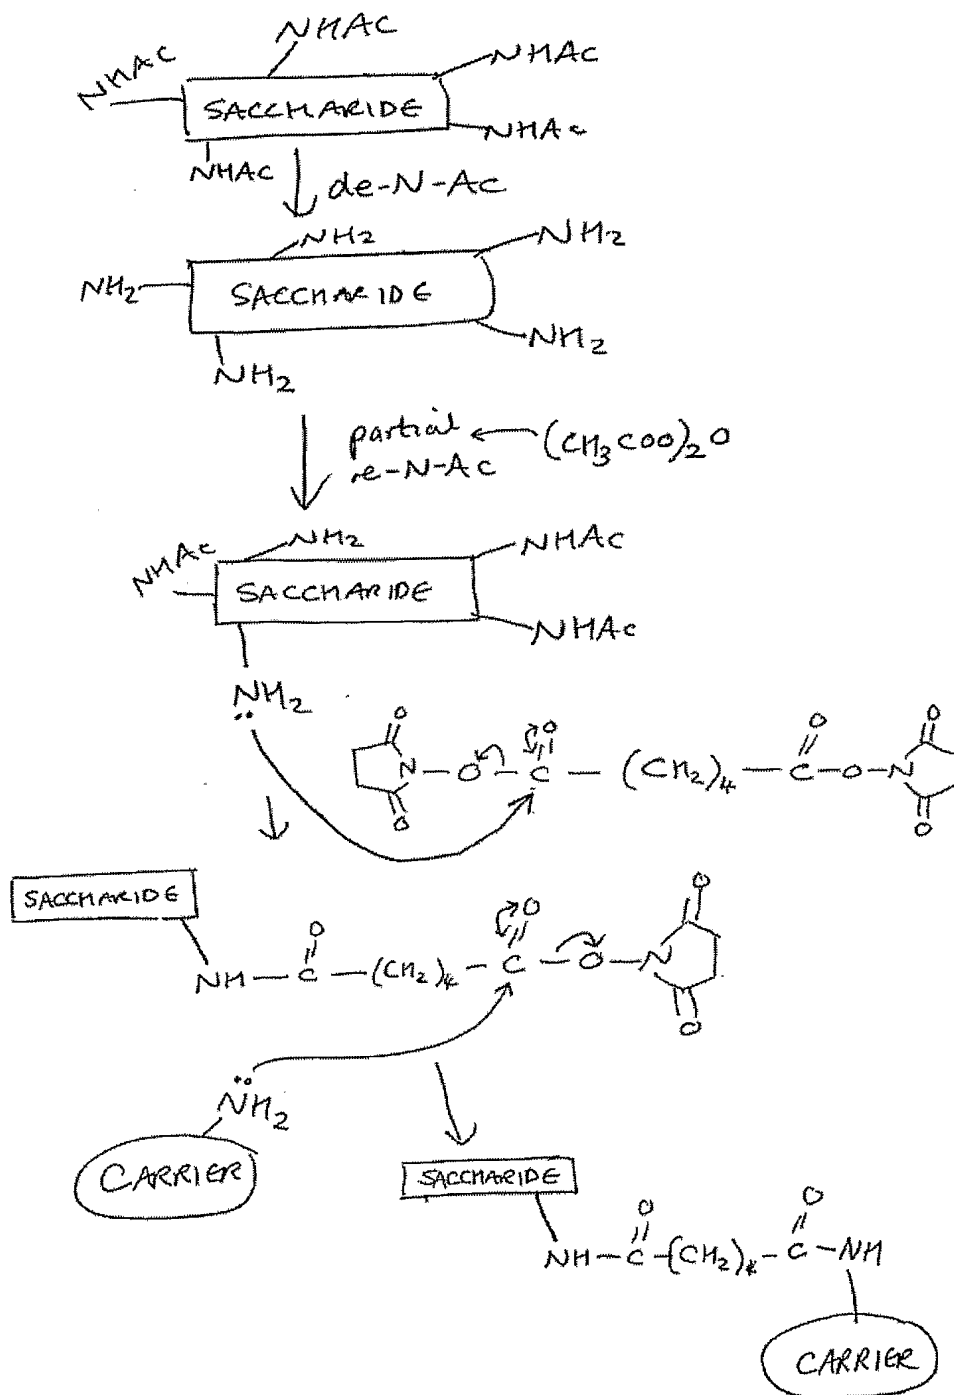 NHAc
NHAc
NHAc
SACCHARIDE
NHAc
NHAc
de-N-Ac
NH2
NH2
NH2
SACCHARIDE
NH2
NH2
partial
(CH3COO)2O
re-N-Ac
NHAc
NH2
NHAc
SACCHARIDE
NHAc
NH2
O O O O
N-O-C-(CH2)4-C-O-N
O O
SACCHARIDE
O O O
NH-C-(CH2)4-C-O-N
O
NH2
CARRIER
SACCHARIDE
O O
NH-C-(CH2)4-C-NH
CARRIER